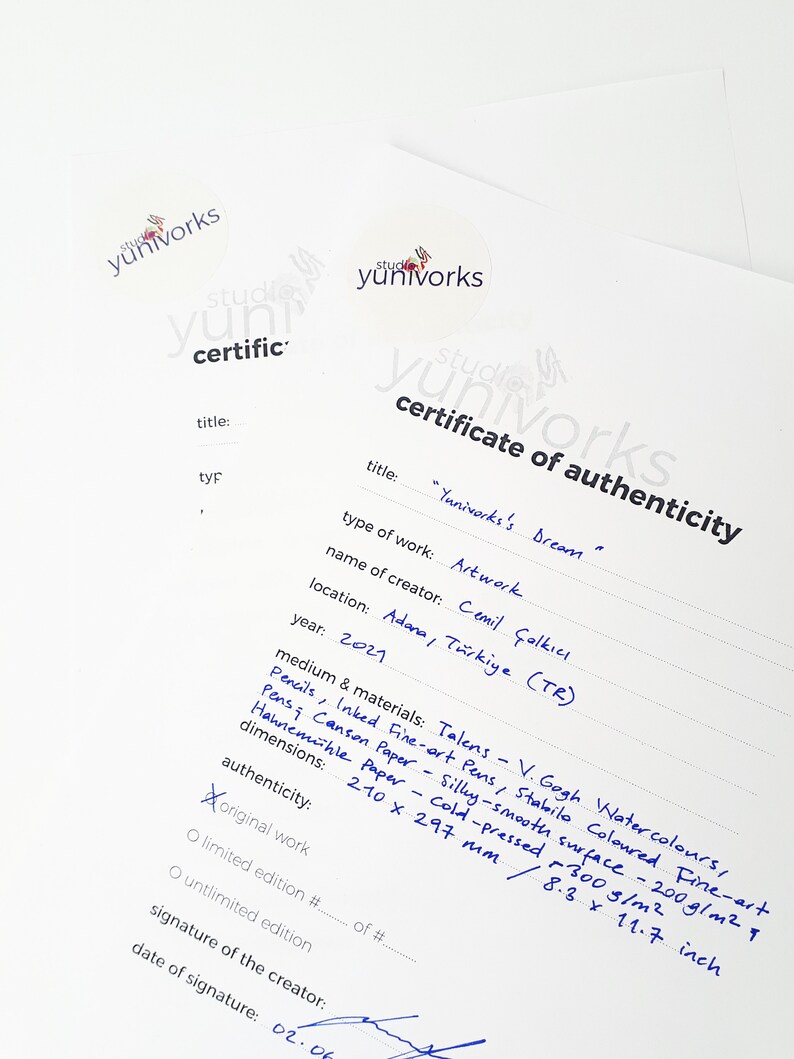 studio
yunivorks
studio
yuni
certific
title:
typ
studio
yunivorks
studio
yunivorks
certificate of authenticity
title: "Yunivorks's Dream"
type of work: Artwork
name of creator: Cemil Çalkıcı
location: Adana, Türkiye (TR)
year: 2021
medium & materials: Talens - V. Gogh Watercolours,
Pencils, Inked Fine-art Pens, Stabilo Coloured Fine-art
Pens; Canson Paper - Silky-smooth surface - 200 g/m2;
Hahnemühle Paper - Cold-pressed - 300 g/m2
dimensions: 210 x 297 mm / 8.3 x 11.7 inch
authenticity:
original work
limited edition #........ of #........
untlimited edition
signature of the creator:
date of signature: 02.06